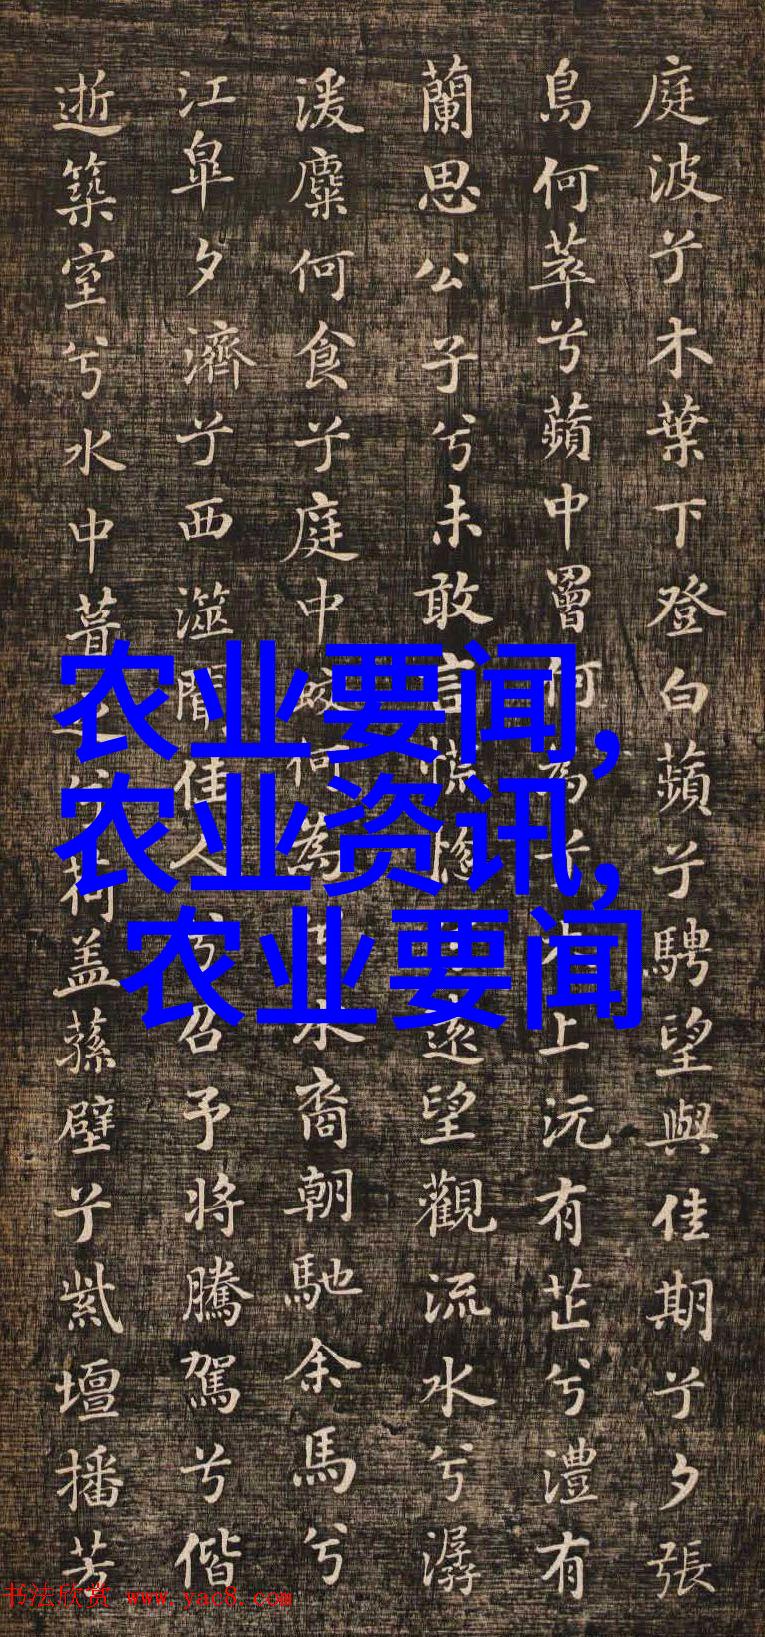 庭波兮木葉下登白蘋兮騁望與佳期兮夕張
鳥何萃兮蘋中罾何為兮木上沅有芷兮澧有
蘭思公子兮未敢言慌惚兮遠望觀流水兮潺
湲麋何食兮庭中蛟何為兮水裔朝馳余馬兮
江皐夕濟兮西澨聞佳人兮召予將騰駕兮偕
逝築室兮水中葺之以荷盖蓀壁兮紫壇播芳
农业要闻,
农业资讯,
农业要闻
书法欣赏 www.yac8.com